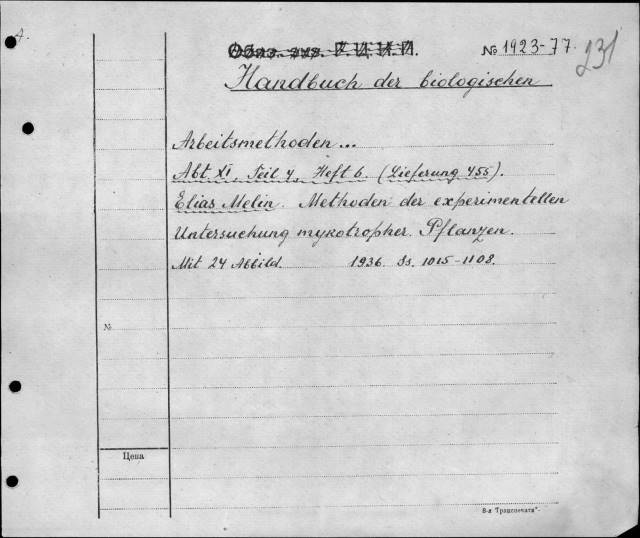 Обяз. экз. Р.Ц.И.П.
№ 1923-77.
231
Handbuch der biologischen
Arbeitsmethoden...
Abt XI, Teil 4, Heft 6. (Lieferung 455).
Elias Melin. Methoden der experimentellen
Untersuchung mykotropher Pflanzen.
Mit 24 Abbild. 1936. Ss. 1015-1108.
№
Цена
8-я "Транспечати".